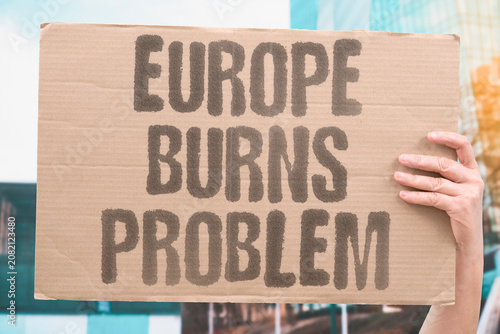 EUROPE
BURNS
PROBLEM
Adobe Stock | #2082123480